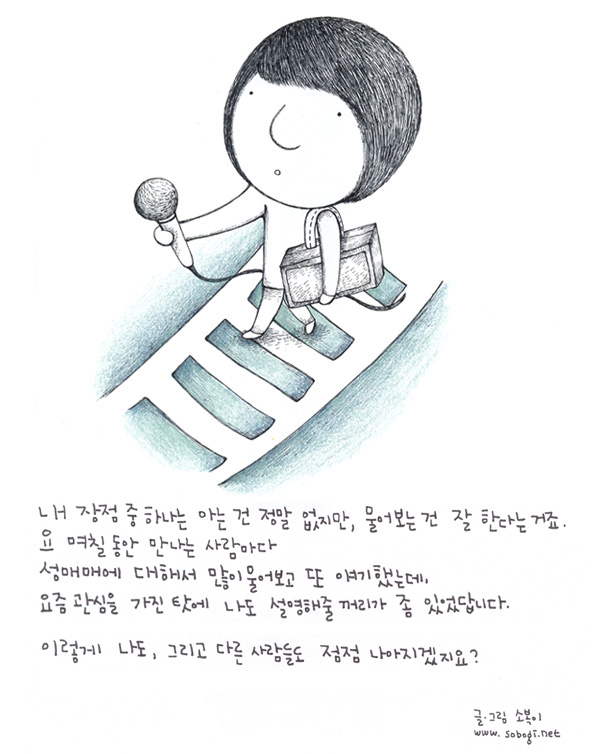 내 장점 중 하나는 아는 건 정말 없지만, 물어보는 건 잘 한다는 거죠.
요 며칠 동안 만나는 사람마다
성매매에 대해서 많이 물어보고 또 얘기했는데,
요즘 관심을 가진 탓에 나도 설명해줄 꺼리가 좀 있었답니다.
이렇게 나도, 그리고 다른 사람들도 점점 나아지겠지요?
글·그림 소복이
www.sobogi.net